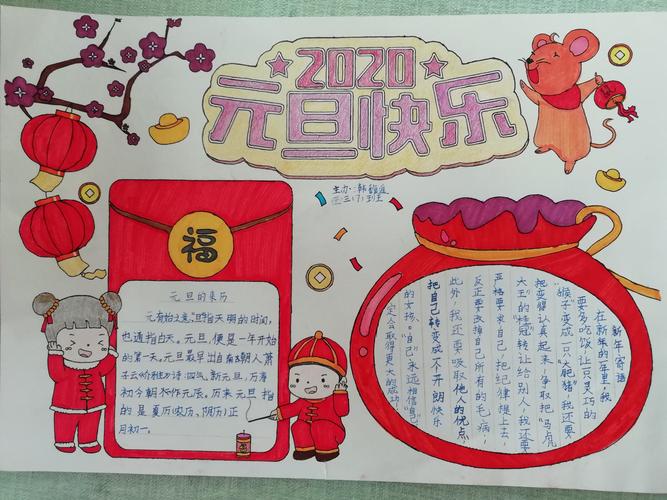 2020
元旦快乐
主办:韩
三(7)班
福
元旦的来历
元有始之意,旦指天明的时间,
也通指白天。元旦,便是一年开始
的第一天。元旦最早出自南朝人萧
子云《介雅》诗:四气新元旦,万寿
初今朝不作元辰。历来元旦指
的是夏历(农历、阴历)正
月初一。
新年寄语
在新的一年里,我
要多吃饭,让豆灵巧的
"猴子变成一只"肥猪"我还要
把变得认真起来,争取把"马虎
大王"的桂冠转让给别人,我还要
严格要求自己,把纪律提上去,
反正要改掉自己所有的毛病,
此外,我还要吸取他人的优点,
把自己转变成不开朗快乐
的女孩。自己永远相信"自己
一定会取得更大的成功!